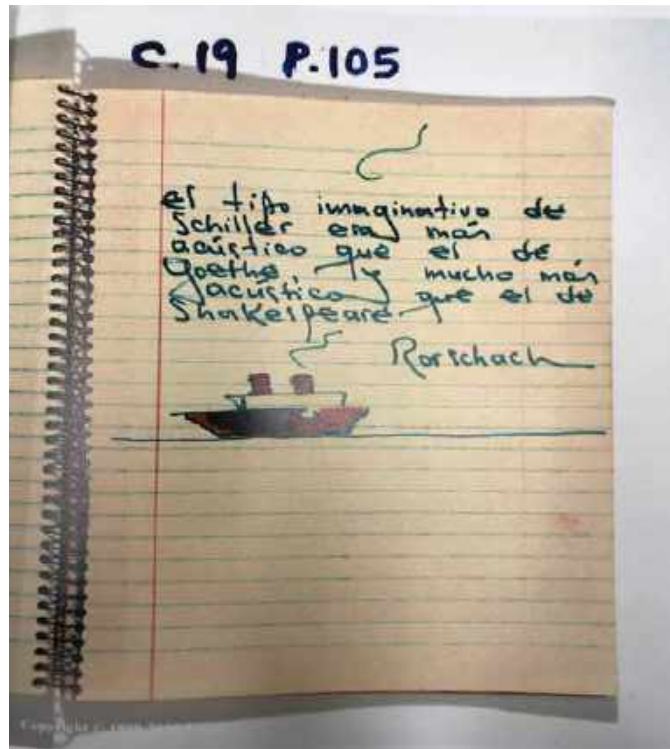 C.19 P.105
el tipo imaginativo de
Schiller era más
acústico que el de
Goethe, y mucho más
acústico que el de
Shakespeare.
Rorschach
Copyright ©